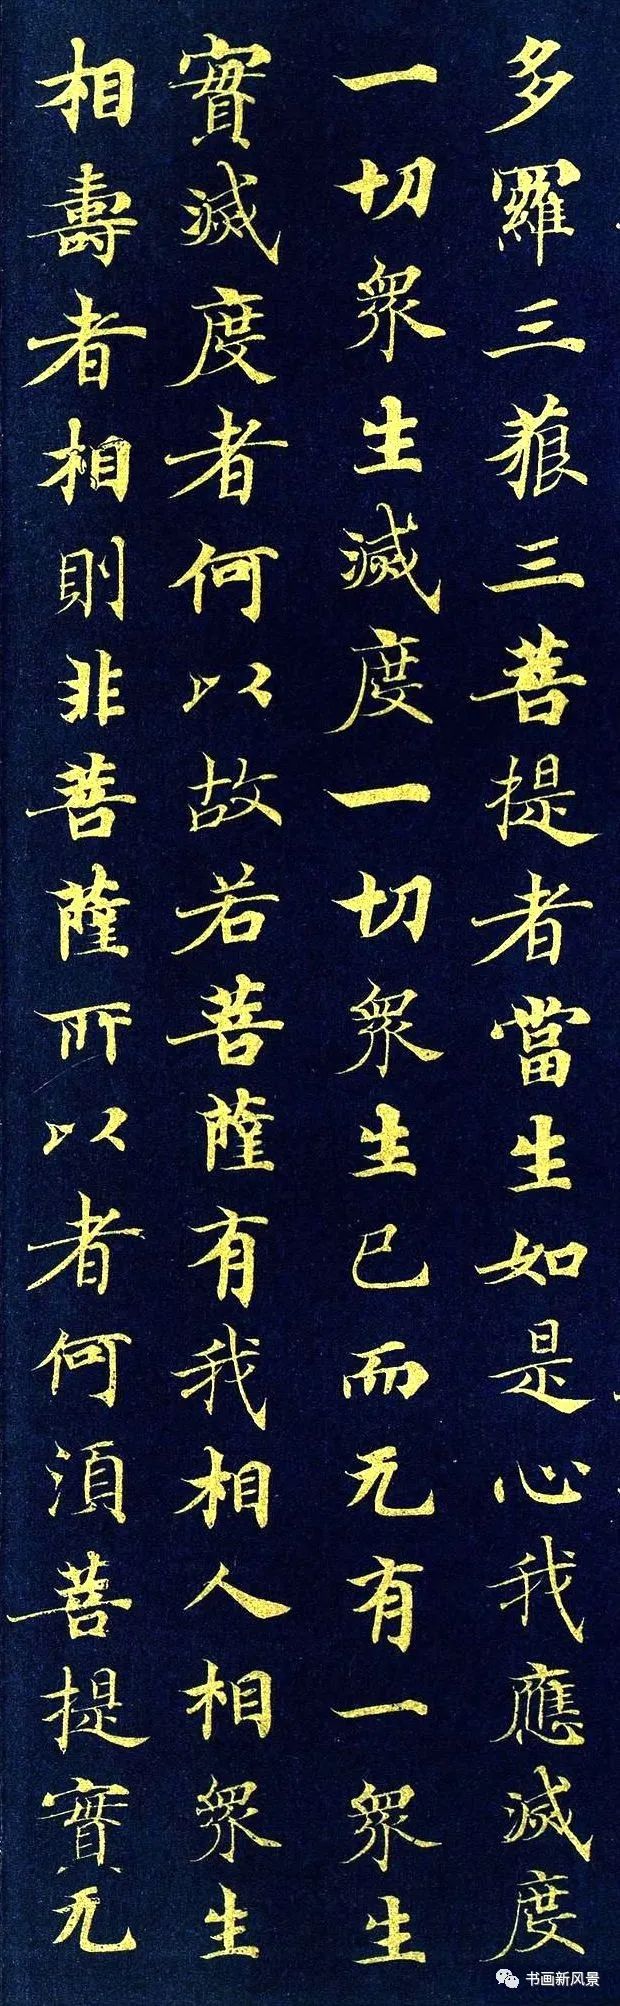 多羅三藐三菩提者當生如是心我應滅度
一切眾生滅度一切眾生已而无有一眾生
實滅度者何以故若菩薩有我相人相眾生
相壽者相則非菩薩所以者何須菩提實无
书画新风景